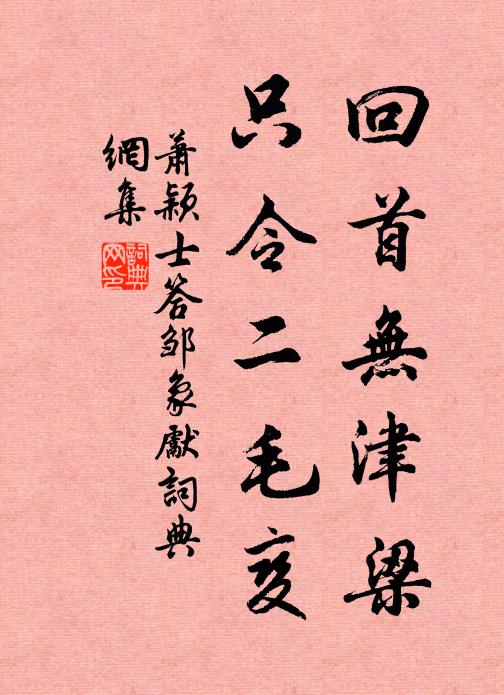 回首無津梁
只令二毛变
蕭颖士答邹象獻詞典
網集
詞典
网印